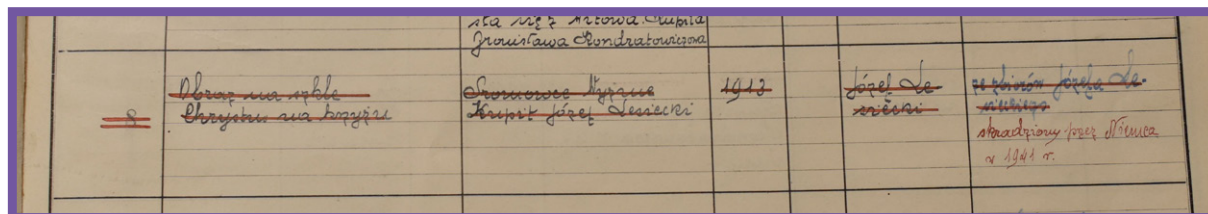 sta się z
Bronisława Kondratowiczowa
8
Obraz na szkle
Chrystus na krzyżu
Sromowce Wyżne
Kupił Józef Lesiecki
1913
Józef Le-
siecki
ze zbiorów Józefa Le-
sieckiego
skradziony przez Niemca
w 1941 r.